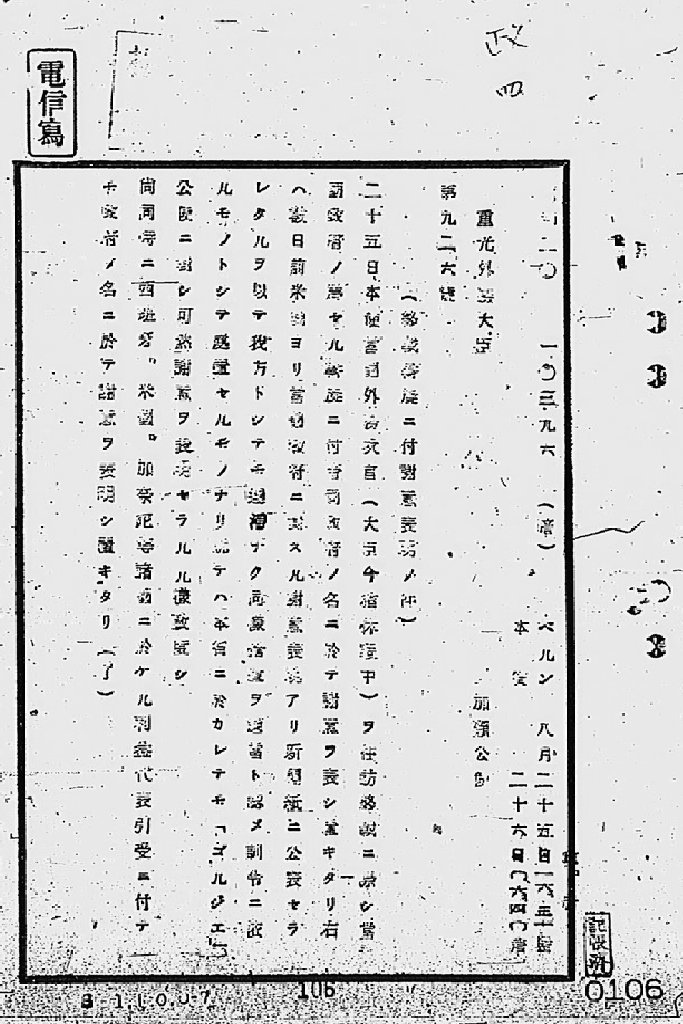 政
四
電信寫
昭和二〇 一〇三九六 (暗) ベルン 八月二十五日一六三〇發
本省 二十六日〇六四〇着
重光外務大臣 加瀬公使
第九二六號
(終戰斡旋ニ付謝意表明ノ件)
二十五日本使當國外務次官(大臣今猶休暇中)ヲ往訪終戰ニ關シ當
國政府ノ爲セル斡旋ニ付帝國政府ノ名ニ於テ謝意ヲ表シ置キタリ右
ハ數日前米國ヨリ當國政府ニ對スル謝意表明アリ新聞紙ニ公表セラ
レタルヲ以テ我方トシテモ遲滯ナク同樣措置ヲ適當ト認メ訓令ニ依
ルモノトシテ處置セルモノナリ就テハ本省ニ於カレテモ「ゴルジエ」
公使ニ對シ可然謝意ヲ表明セラルル樣致度シ
尚同時ニ西班牙。米國。加奈陀等諸國ニ於ケル利益代表引受ニ付テ
モ政府ノ名ニ於テ謝意ヲ表明シ置キタリ(了)
記帳濟
B-1.1.0.J-7
106
0106